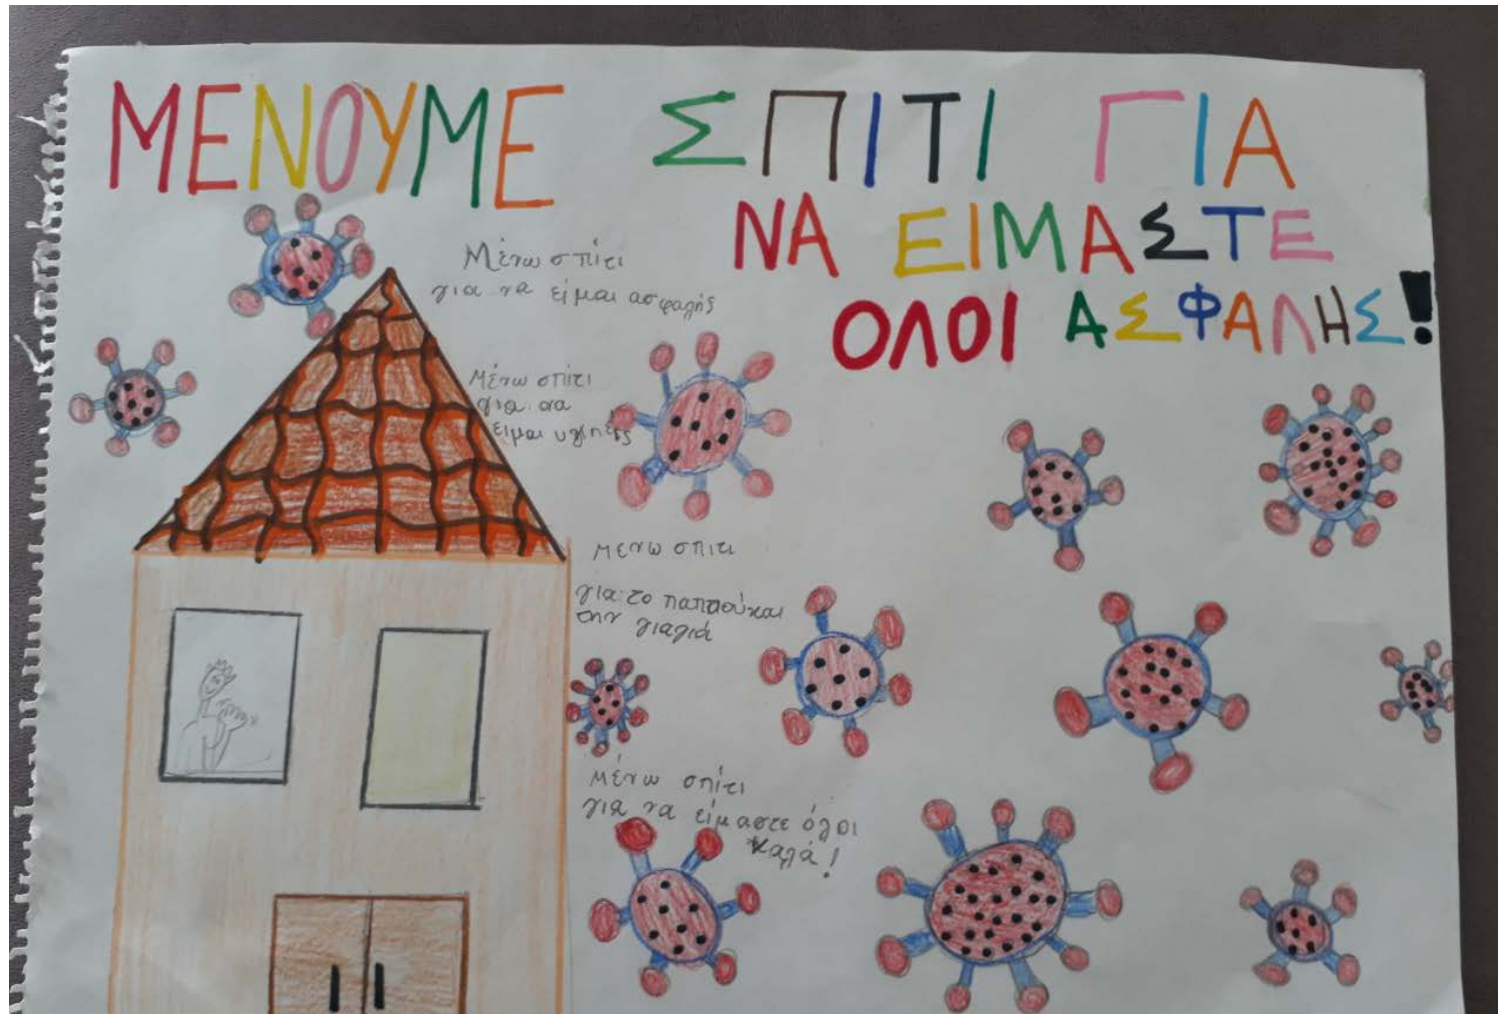 ΜΕΝΟΥΜΕ ΣΠΙΤΙ ΓΙΑ
ΝΑ ΕΙΜΑΣΤΕ
ΟΛΟΙ ΑΣΦΑΛΗΣ!
Μένω σπίτι
για να είμαι ασφαλής
Μένω σπίτι
για να
είμαι υγιπές
Μενω σπιτι
για το παππού και
την γιαγιά
Μένω σπίτι
για να είμαστε όλοι
καλά!